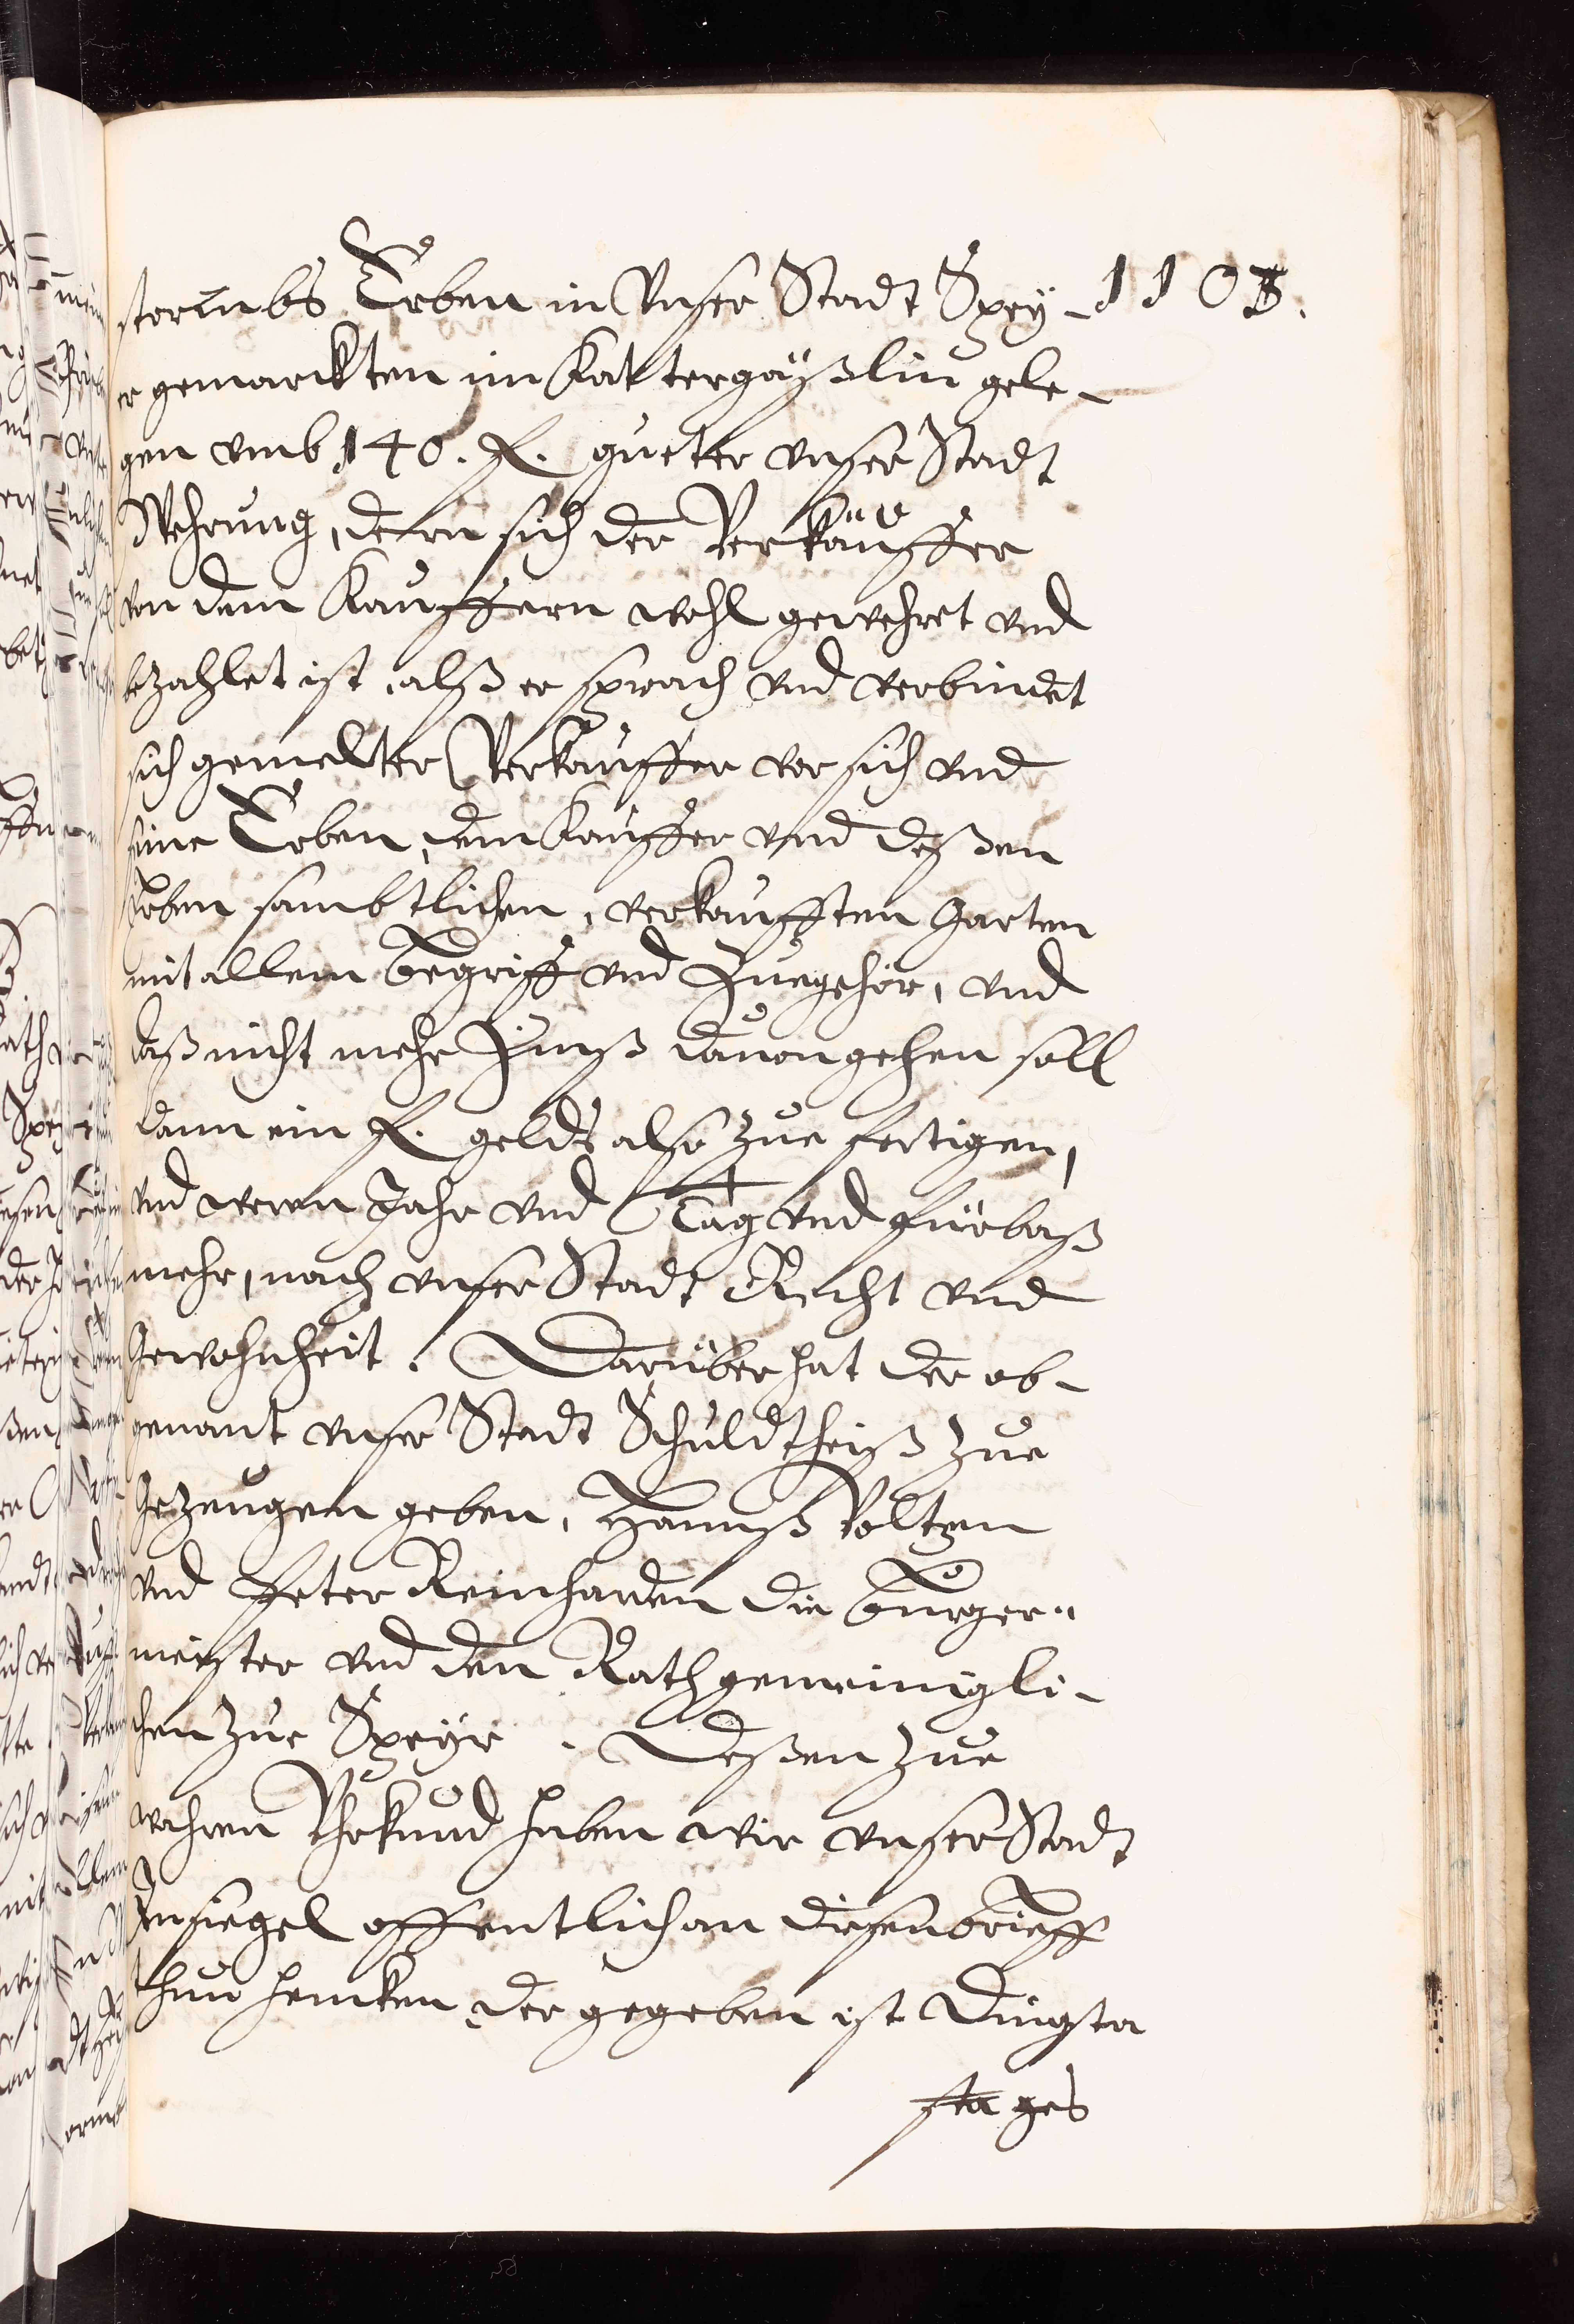 storumbs Erben in Vnser Stadt Speÿ- 1103.
er gemarckten im Kattergäßlin gele-
gen vmb 140. fl. gueter vnser Stadt
Wehrung, dern sich der Verkäuffer
von dem Kauffern wohl gewehret vnd
bezahlet ist, alß er sprach vnd verbindet
sich gemelter Verkäuffer vor sich vnd
seine Erben, dem Käuffer vnd deßen
Erben sambtlichen, verkaufften Garten
mit allem begriff vnd Zuegehör, vnd
daß nicht mehr Zinß dauon gehen soll
dann ein fl. gelds also zue fertigen,
vnd weren Jahr vnd Tag vnd fürbaß
mehr, nach vnser Stadt Recht vnd
Gewohnheit. Darüber hat der ob-
genant vnser Stadt Schuldtheiß zue
Gezeugen geben, Hannß Voltzen
vnd Peter Reinharden die Burger-
meister vnd den Rath gemeinigli-
chen zue Speÿr. Deßen zue
wahren Vhrkund haben wir vnser Stadt
Insiegel offentlich an diesen brieff
thun hencken, der gegeben ist Dingsta
stages